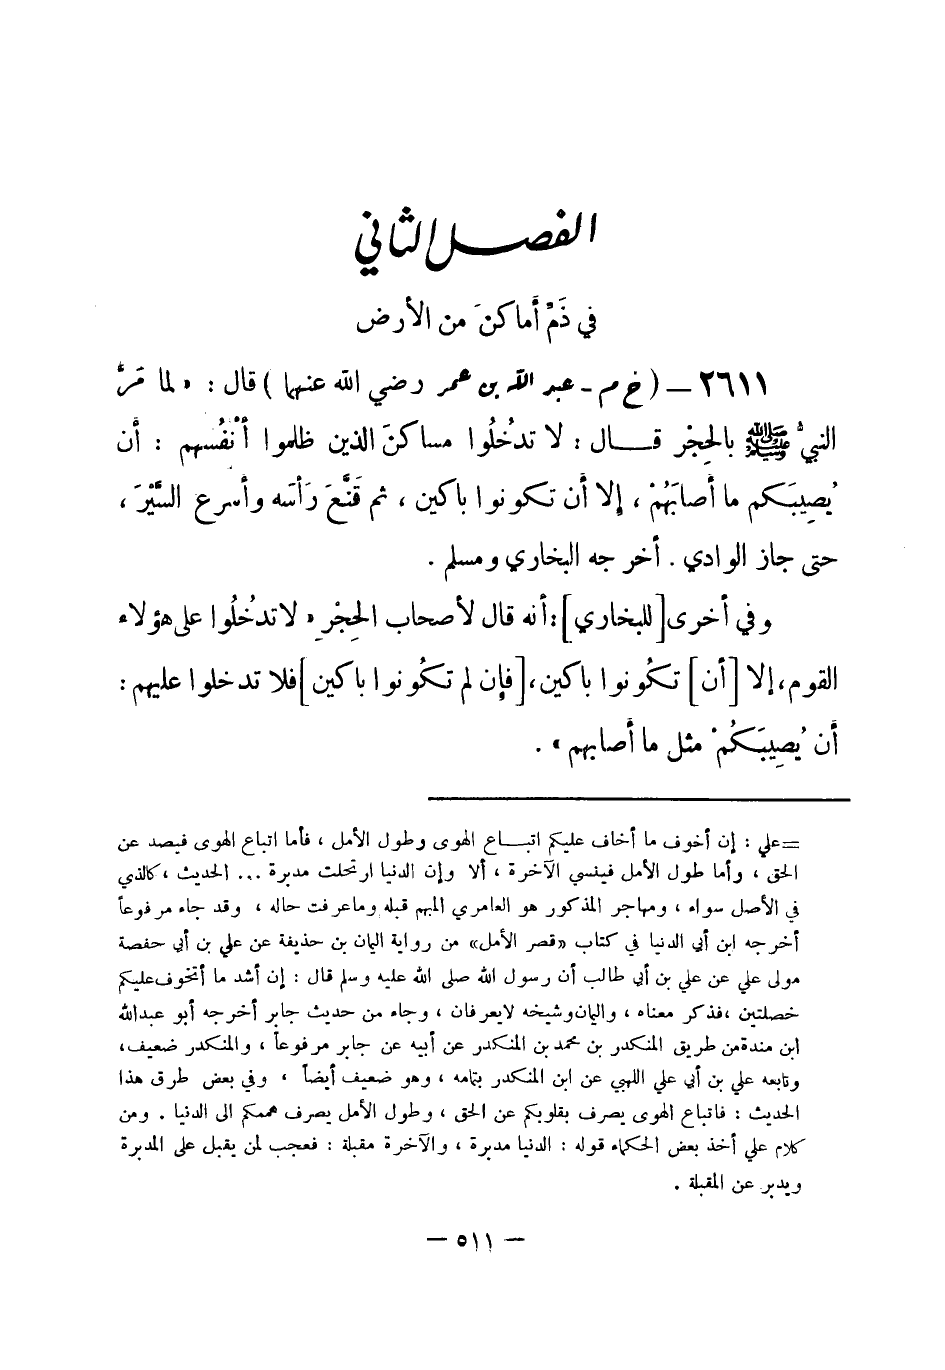 الفصل الثاني
في ذَمِّ أماكنَ من الأرض
٢٦١١ – ( خ م - عبد الله بن عمر رضي الله عنهما ) قال : « لما مَرَّ
النبيُّ ﷺ بالحِجْر قال : لا تدخُلُوا مساكنَ الذين ظلموا أنْفُسهم : أن
يُصِيبَكم ما أصابَهُمْ ، إلا أن تكونوا باكين ، ثم قَنَّعَ رَأسَه وأسرع السَّيْرَ ،
حتى جاز الوادي . أخرجه البخاري ومسلم .
وفي أخرى [للبخاري] : أنه قال لأصحاب الحِجْر « لا تدخُلُوا على هؤلاء
القوم ، إلا [أن] تكُونوا باكين ، [فإن لم تكُونوا باكين] فلا تدخلوا عليهم :
أن يُصِيبَكُمْ مثل ما أصابهم » .
=علي : إن أخوف ما أخاف عليكم اتباع الهوى وطول الأمل ، فأما اتباع الهوى فيصد عن
الحق ، وأما طول الأمل فينسي الآخرة ، ألا وإن الدنيا ارتحلت مدبرة ... الحديث ، كالذي
في الأصل سواء ، ومهاجر المذكور هو العامري المبهم قبله وما عرفت حاله ، وقد جاء مرفوعاً
أخرجه ابن أبي الدنيا في كتاب «قصر الأمل» من رواية اليمان بن حذيفة عن علي بن أبي حفصة
مولى علي عن علي بن أبي طالب أن رسول الله صلى الله عليه وسلم قال : إن أشد ما أتخوف عليكم
خصلتين ، فذكر معناه ، واليمان وشيخه لا يعرفان ، وجاء من حديث جابر أخرجه أبو عبدالله
ابن منده من طريق المنكدر بن محمد بن المنكدر عن أبيه عن جابر مرفوعاً ، والمنكدر ضعيف ،
وتابعه علي بن أبي علي اللهبي عن ابن المنكدر بتمامه ، وهو ضعيف أيضاً ، وفي بعض طرق هذا
الحديث : فاتباع الهوى يصرف بقلوبكم عن الحق ، وطول الأمل يصرف هممكم الى الدنيا . ومن
كلام علي أخذ بعض الحكماء قوله : الدنيا مدبرة ، والآخرة مقبلة : فعجب لمن يقبل على المدبرة
ويدبر عن المقبلة .
– ٥١١ –